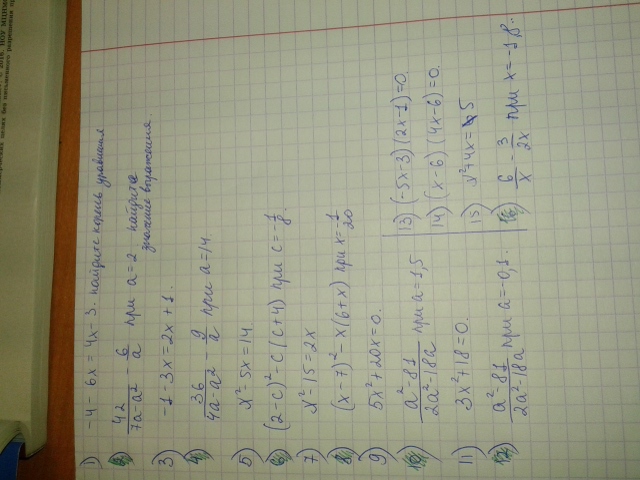 1) -4 - 6x = 4x - 3. найдите корень уравнения
2) 42/(7a-a²) - 6/a при a = 2 найдите
значение выражения
3) -1 - 3x = 2x + 1.
4) 36/(4a-a²) - 9/a при a = 14.
5) x² - 5x = 14.
6) (2-c)² - c(c+4) при c = -1/8.
7) x² - 15 = 2x
8) (x-7)² - x(6+x) при x = -1/20
9) 5x² + 20x = 0.
10) (a²-81)/(2a²-18a) при a = 1,5
11) 3x² + 18 = 0.
12) (a²-81)/(2a²-18a) при a = -0,1.
13) (-5x-3)(2x-1)=0.
14) (x-6)(4x-6)=0.
15) x²+4x=5
16) 6/x - 3/2x при x = -1,8.